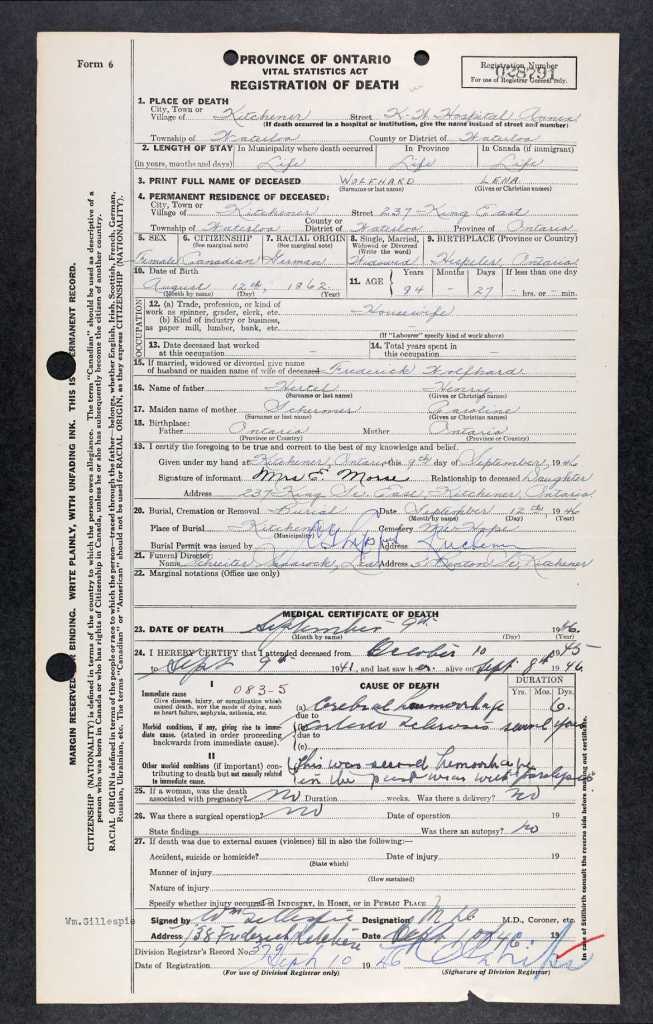 Form 6
PROVINCE OF ONTARIO
VITAL STATISTICS ACT
REGISTRATION OF DEATH
Registration Number
028291
For use of Registrar General only.
1. PLACE OF DEATH
City, Town or
Village of Kitchener Street K. W. Hospital Annex
(If death occurred in a hospital or institution, give the name instead of street and number)
Township of Waterloo County or District of Waterloo
2. LENGTH OF STAY In Municipality where death occurred In Province In Canada (if immigrant)
(in years, months and days) Life Life Life
3. PRINT FULL NAME OF DECEASED WOLFHARD LENA
(Surname or last name) (Given or Christian names)
4. PERMANENT RESIDENCE OF DECEASED:
City, Town or
Village of Kitchener Street 237 King East
Township of Waterloo County or District of Waterloo Province of Ontario
5. SEX 6. CITIZENSHIP 7. RACIAL ORIGIN 8. Single, Married, Widowed or Divorced 9. BIRTHPLACE (Province or Country)
(See marginal note) (See marginal note) (Write the word)
Female Canadian German Widowed Hespeler, Ontario
10. Date of Birth
August 12th, 1862
(Month by name) (Day) (Year)
11. AGE Years Months Days If less than one day
84 27 hrs. or min.
OCCUPATION
12. (a) Trade, profession, or kind of work as spinner, grader, clerk, etc. Housewife
(b) Kind of industry or business, as paper mill, lumber, bank, etc.
(If "Labourer" specify kind of work above)
13. Date deceased last worked at this occupation
14. Total years spent in this occupation
15. If married, widowed or divorced give name of husband or maiden name of wife of deceased Frederick Wolfhard
16. Name of father Hertel Henry
(Surname or last name) (Given or Christian names)
17. Maiden name of mother Caroline
(Surname or last name) (Given or Christian names)
18. Birthplace:
Father Ontario Mother Ontario
(Province or Country) (Province or Country)
19. I certify the foregoing to be true and correct to the best of my knowledge and belief.
Given under my hand at Kitchener, Ontario this 9th day of September, 1946
Signature of informant Mrs E. Morse Relationship to deceased Daughter
Address 237 King St. East, Kitchener, Ontario
20. Burial, Cremation or Removal Burial Date September 12th 1946
(Month by name) (Day)
Place of Burial Kitchener Cemetery Mt. Hope
(Municipality)
Burial Permit was issued by Address
21. Funeral Director:
Name Address Benton St, Kitchener
22. Marginal notations (Office use only)
MEDICAL CERTIFICATE OF DEATH
23. DATE OF DEATH September 9th 1946.
(Month by name) (Day) (Year)
24. I HEREBY CERTIFY that I attended deceased from October 10 1945
to Sept 9th 1941, and last saw h alive on Sept 8th 1946.
I 083-5 CAUSE OF DEATH DURATION
Yrs. Mos. Dys.
Immediate cause
Give disease, injury, or complication which caused death, not the mode of dying, such as heart failure, asphyxia, asthenia, etc.
(a) Cerebral haemorrhage 6.
due to
Morbid conditions, if any, giving rise to immediate cause. (stated in order proceeding backwards from immediate cause).
(b) Arterio Sclerosis
due to
(c)
II
Other morbid conditions (if important) contributing to death but not causally related to immediate cause.
This was second hemorrhage
in the past
25. If a woman, was the death associated with pregnancy? no Duration weeks. Was there a delivery? no
26. Was there a surgical operation? no Date of operation 19
State findings Was there an autopsy? no
27. If death was due to external causes (violence) fill in also the following:—
Accident, suicide or homicide? Date of injury 19
(State which)
Manner of injury
(How sustained)
Nature of injury
Specify whether injury occurred in INDUSTRY, in HOME, or in PUBLIC PLACE
Wm.Gillespie
Signed by Wm Gillespie Designation M.D., Coroner, etc.
Address 38 Frederick Kitchener Date Sept 10 1946
Division Registrar's Record No. 379
Date of Registration Sept 10 1946
(For use of Division Registrar only) (Signature of Division Registrar)
MARGIN RESERVED FOR BINDING. WRITE PLAINLY, WITH UNFADING INK. THIS IS A PERMANENT RECORD.
CITIZENSHIP (NATIONALITY) is defined in terms of the country to which the person owes allegiance. The term "Canadian" should be used as descriptive of a
person who was born in Canada or who has rights of Citizenship in Canada, unless he or she has subsequently become the citizen of another country.
RACIAL ORIGIN is defined in terms of the people or race to which the person—traced through the father—belongs, whether English, Irish, Scottish, French, German,
Russian, Ukrainian, etc. The terms "Canadian" or "American" should not be used for RACIAL ORIGIN, as they express CITIZENSHIP (NATIONALITY).
In case of Stillbirth consult the reverse side before making out certificate.